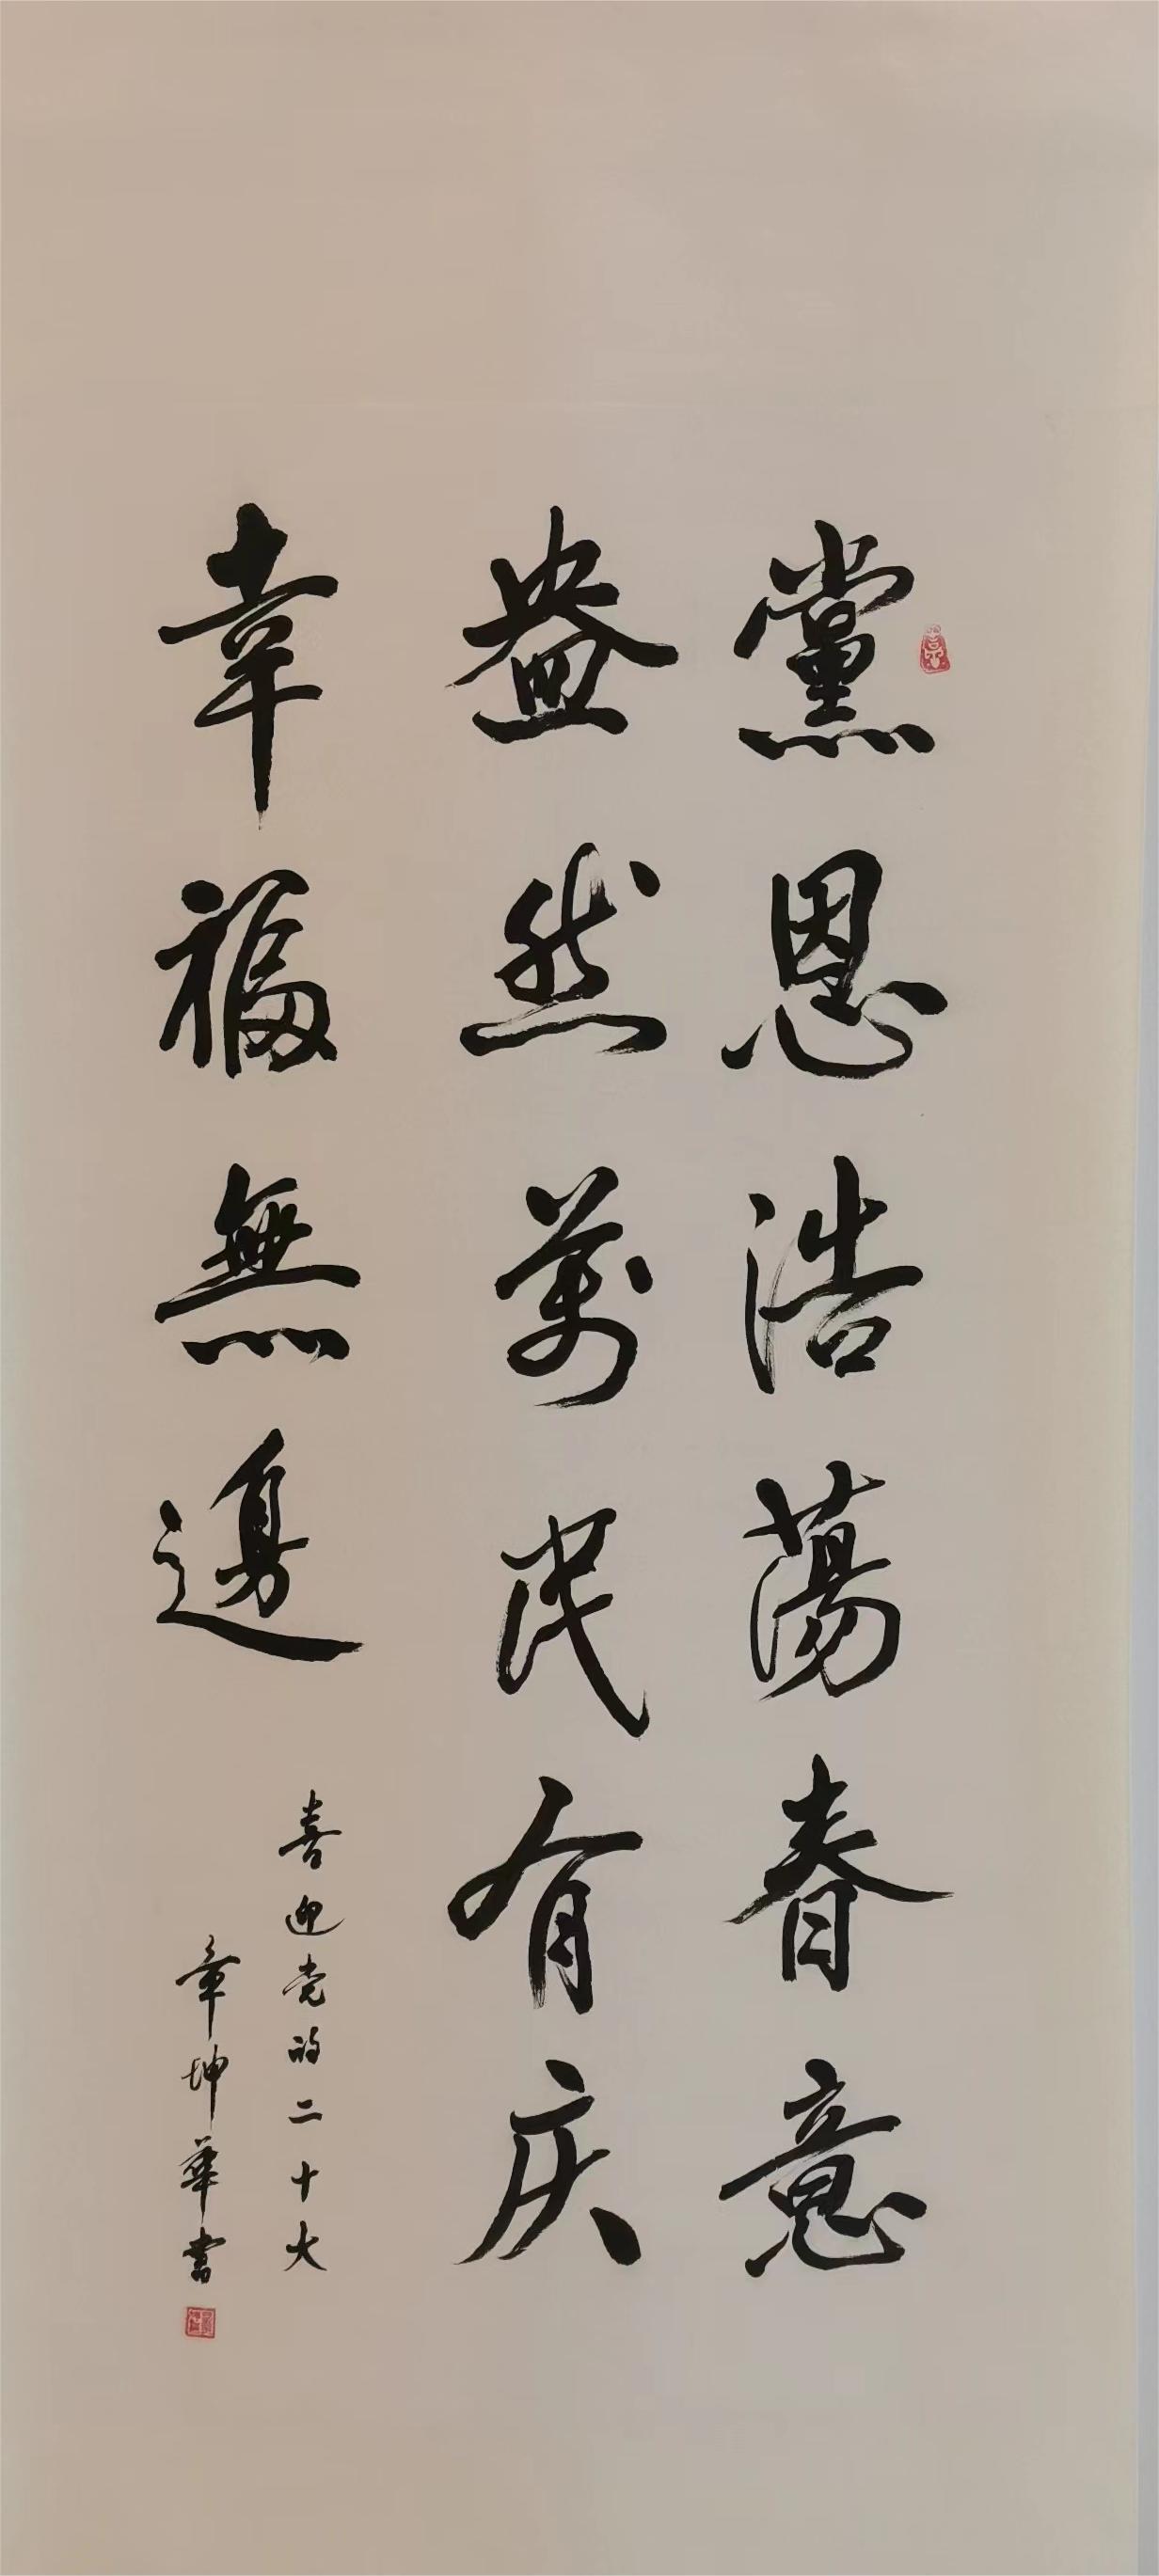 黨恩浩蕩春意
盎然萬民有庆
幸福無邊
喜迎党的二十大
章坤華書